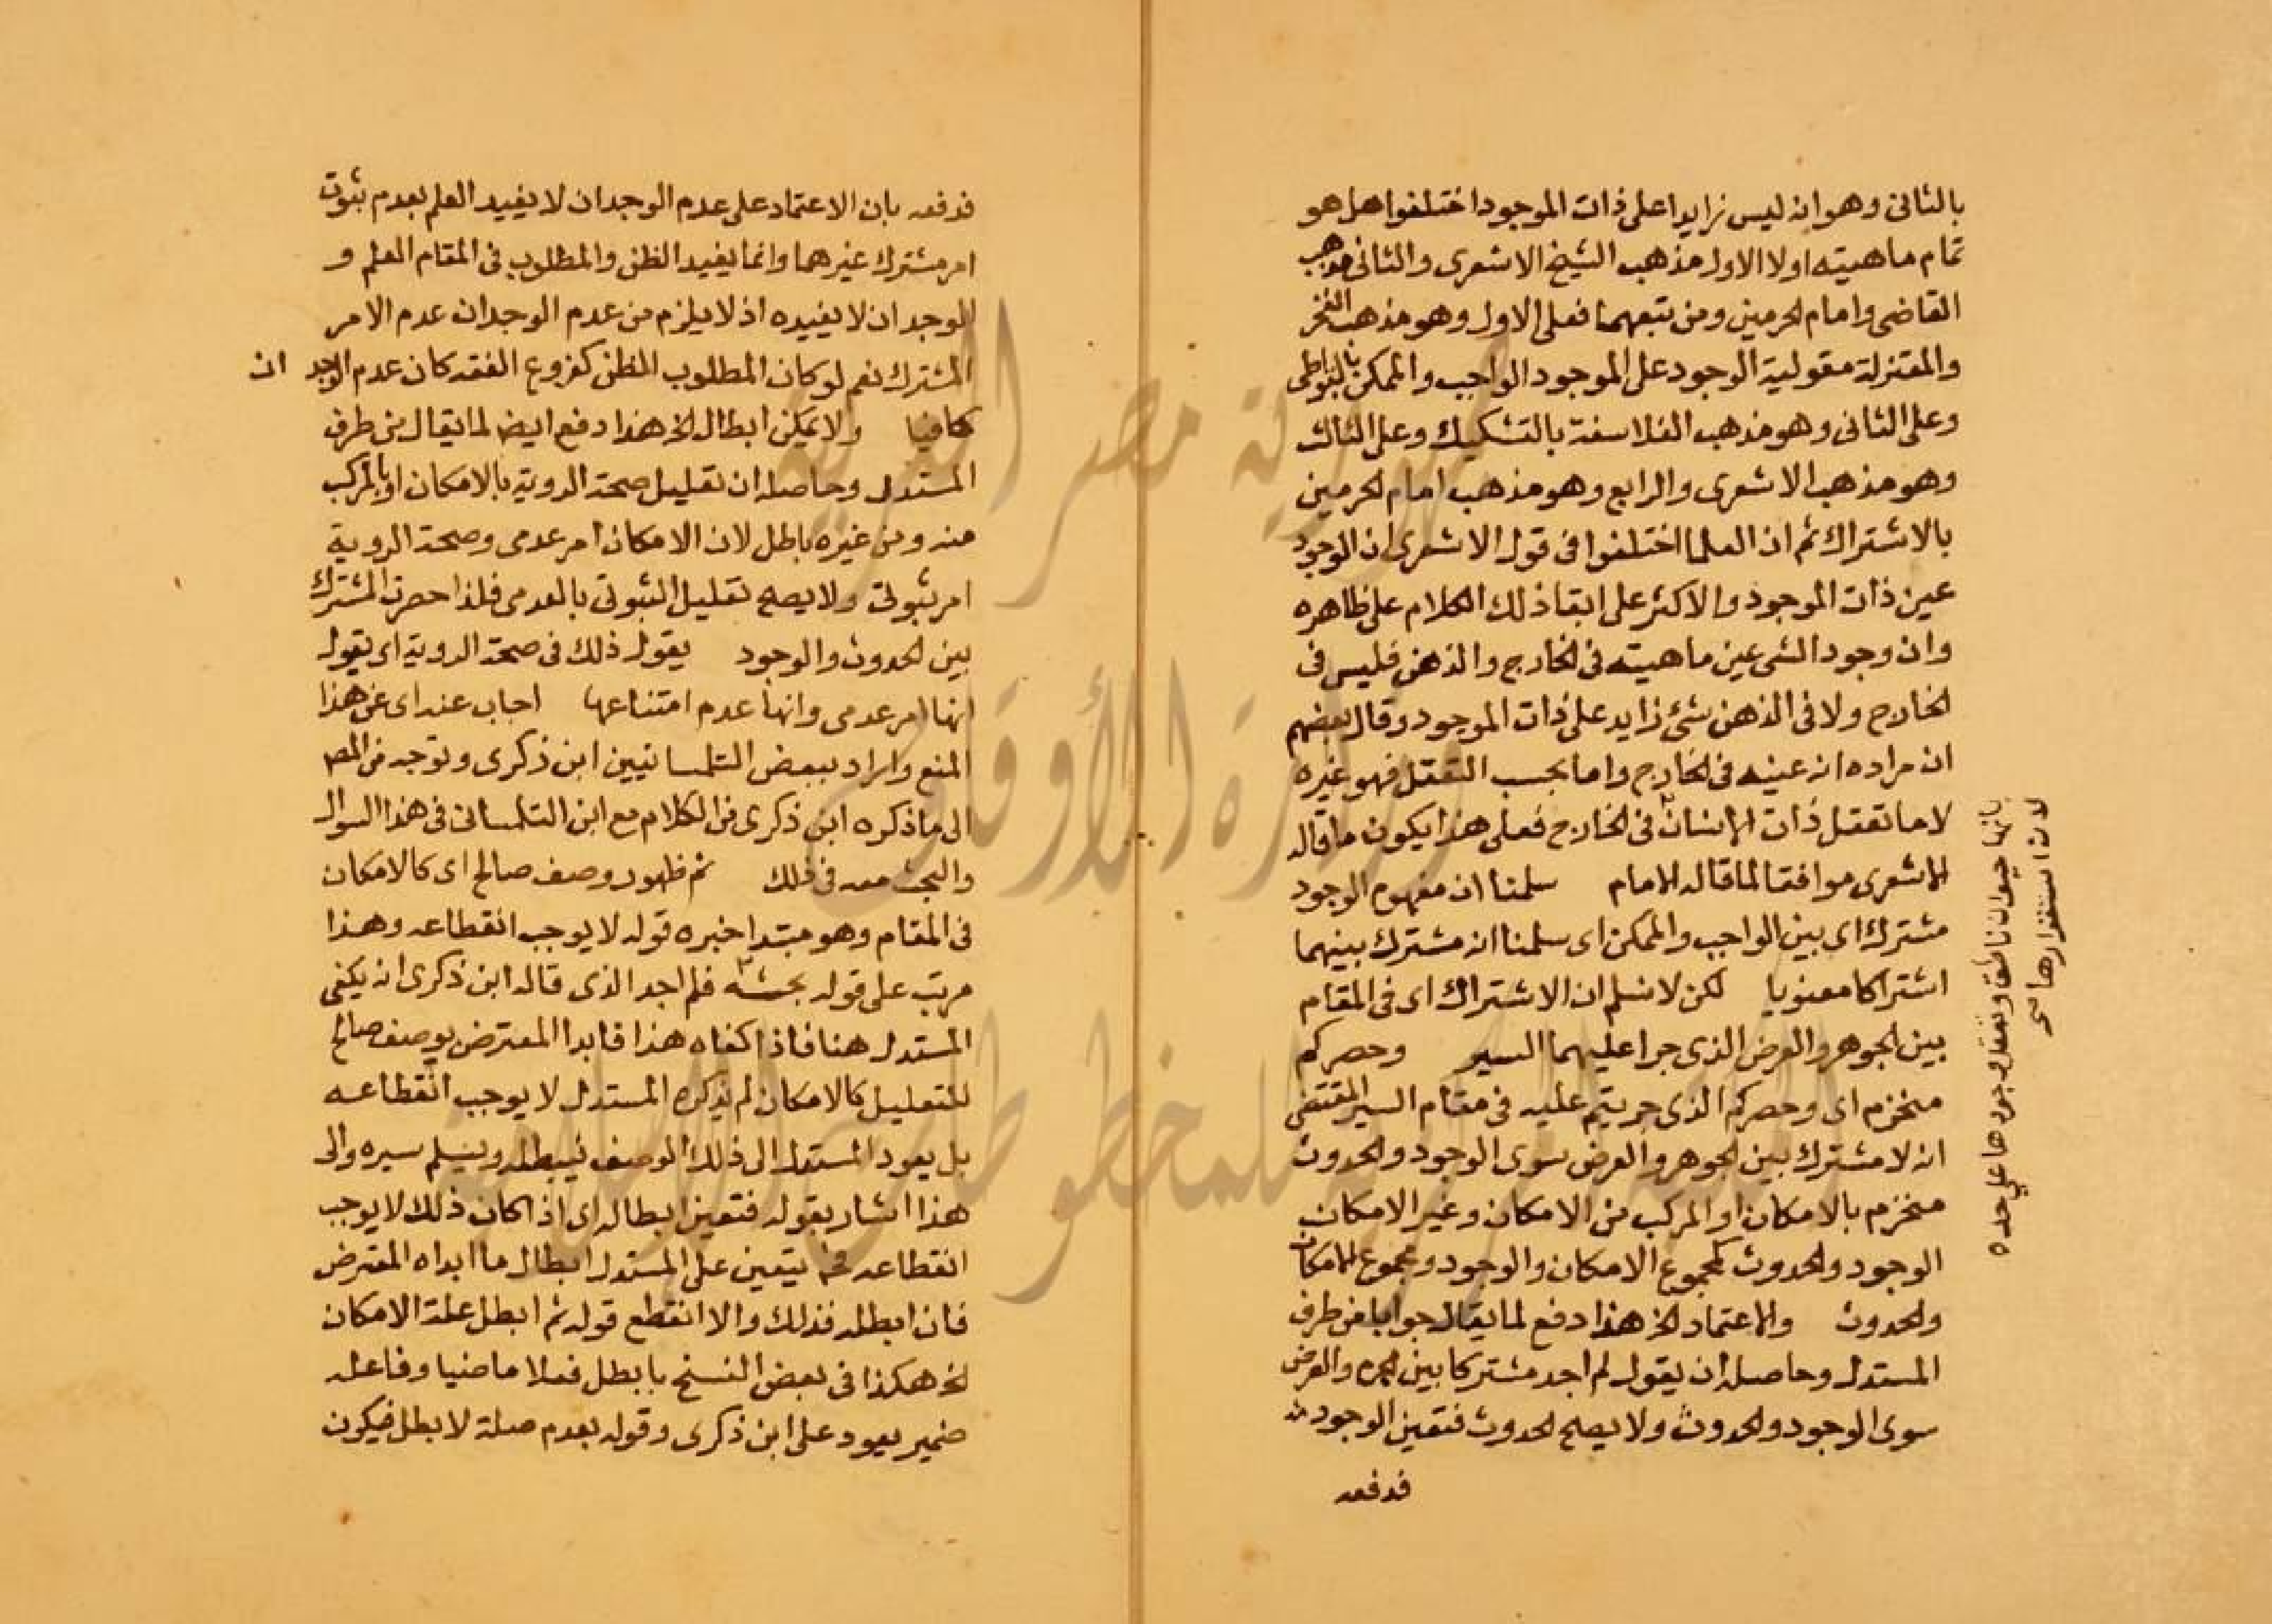 بالثانى وهو انه ليس زايدا على ذات الموجود اختلفوا هل هو
تمام ماهيته اولا الاول مذهب الشيخ الاشعرى والثانى مذهب
القاضى وامام الحرمين ومن تبعهما فعلى الاول وهو مذهب الفخر
والمعتزلة مقولية الوجود على الموجود الواجب والممكن بالتواطى
وعلى الثانى وهو مذهب الفلاسفة بالتشكيك وعلى الثالث
وهو مذهب الاشعرى والرابع وهو مذهب امام الحرمين
بالاشتراك ثم ان العلما اختلفوا فى قول الاشعرى ان الوجود
عين ذات الموجود والاكثر على ابقا ذلك الكلام على ظاهره
وان وجود الشى عين ماهيته فى الخارج والذهن فليس فى
الخارج ولا فى الذهن شئ زايد على ذات الموجود وقال بعضهم
ان مراده انه عينه فى الخارج واما بحسب التعقل فهو غيره
لاما تعقل ذات الانسان فى الخارج فعلى هذا يكون ما قاله
الاشعرى موافقا لما قاله الامام سلمنا ان مفهوم الوجود
مشترك اى بين الواجب والممكن اى سلمنا انه مشترك بينهما
اشتراكا معنويا لكن لا نسلم ان الاشتراك اى فى المقام
بين الجوهر والعرض الذى جرا عليهما السير وحصركم
منخزم اى وحصركم الذى جريتم عليه فى مقام السير المقتضى
انه لا مشترك بين الجوهر والعرض سوى الوجود والحدوث
منخزم بالامكان او المركب من الامكان وغير الامكان
الوجود والحدوث كمجموع الامكان والوجود ومجموع الامكان
والحدوث والاعتماد الخ هذا دفع لما يقال جوابا من طرف
المستدل وحاصله ان يقول لم اجد مشتركا بين الجرم والعرض
سوى الوجود والحدوث ولا يصلح الحدوث فتعين الوجود
فدفعه
بانها حيوان ناطق وتعقل وجودها على حده
لان استقرارها
فدفعه بان الاعتماد على عدم الوجدان لا يفيد العلم بعدم ثبوت
امر مشترك غيرهما وانما يفيد الظن والمطلوب فى المقام العلم و
الوجدان لا يفيده اذ لا يلزم من عدم الوجدان عدم الامر
المشترك نعم لو كان المطلوب الظن كفروع الفقه كان عدم الوجد ان
كافيا ولا يمكن ابطال الخ هذا دفع ايضا لما يقال من طرف
المستدل وحاصله ان تعليل صحة الروية بالامكان او بالمركب
منه ومن غيره باطل لان الامكان امر عدمى وصحة الروية
امر ثبوتى ولا يصح تعليل الثبوتى بالعدمى فلذا حصرت المشترك
بين الحدوث والوجود يقول ذلك فى صحة الروية اى يقول
انها امر عدمى وانها عدم امتناعها اجاب عنه اى عن هذا
المنع واراد ببعض التلمسانيين ابن ذكرى وتوجه من المص
الى ما ذكره ابن ذكرى من الكلام مع ابن التلمسانى فى هذا السوال
والبحث معه فى ذلك ثم ظهور وصف صالح اى كالامكان
فى المقام وهو مبتدا خبره قوله لا يوجب انقطاعه وهذا
مرتب على قوله بحثت فلم اجد الذى قاله ابن ذكرى انه يكفى
المستدل هنا فاذا كفاه هذا فابدا المعترض بوصف صالح
للتعليل كالامكان لم يذكره المستدل لا يوجب انقطاعه
بل يعود المستدل الى ذلك الوصف فيبطله ويسلم سيره والى
هذا اشار بقوله فتعين ابطاله اى اذا كان ذلك لا يوجب
انقطاعه يتعين على المستدل ابطال ما ابداه المعترض
فان ابطله فذلك والا انقطع قوله ثم ابطل علة الامكان
الخ هكذا فى بعض النسخ بابطل فعلا ماضيا وفاعله
ضمير يعود على ابن ذكرى وقوله بعدم صلة لا بطل فيكون